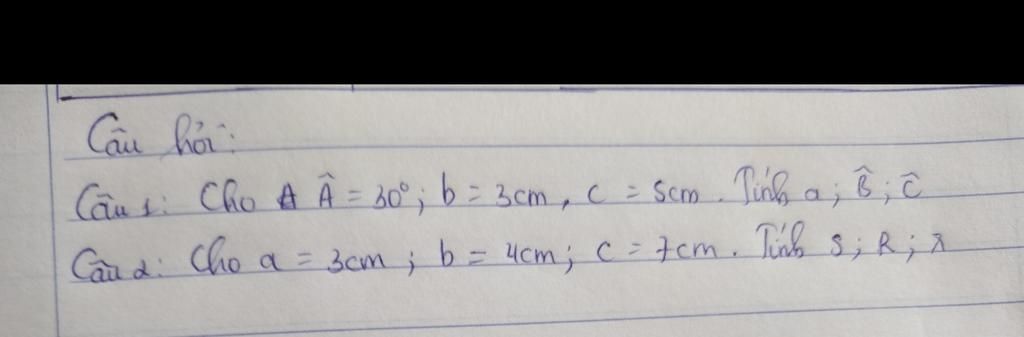 Câu hỏi:
Câu 1: Cho Â = 30°; b = 3cm, c = 5cm. Tính a; B̂; Ĉ
Câu 2: Cho a = 3cm; b = 4cm; c = 7cm. Tính S; R; r